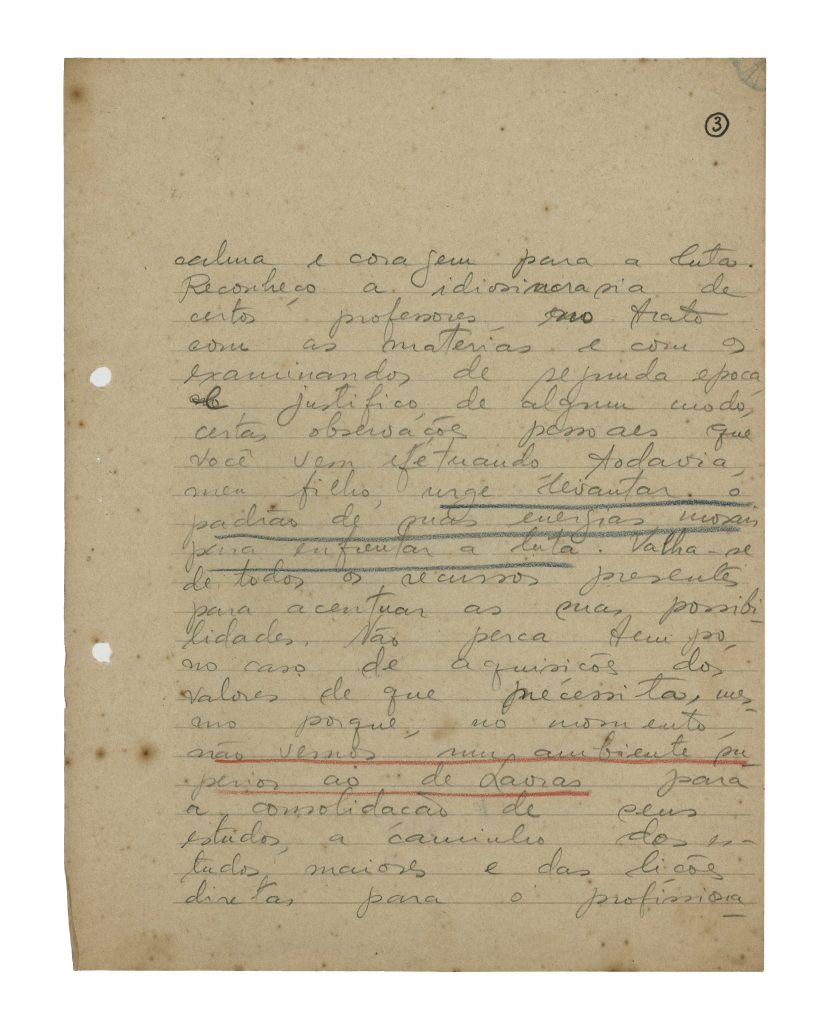 3
calma e coragem para a luta.
Reconheço a idiosincrasia de
certos professores no trato
com as materias e com os
examinandos de segunda epoca
e, justifico, de algum modo,
certas observações pessoaes que
você vem efetuando. Todavia,
meu filho, urge levantar o
padrão de suas energias morais
para enfrentar a luta. Valha-se
de todos os recursos presentes
para acentuar as suas possibi-
lidades. Não perca tempo,
no caso de aquisições dos
valores de que necessita, mes-
mo porque, no momento,
não vemos um ambiente su
perior ao de Lavras para
a consolidação de seus
estudos, a caminho dos es-
tudos maiores e das lições
diretas para o profissiona